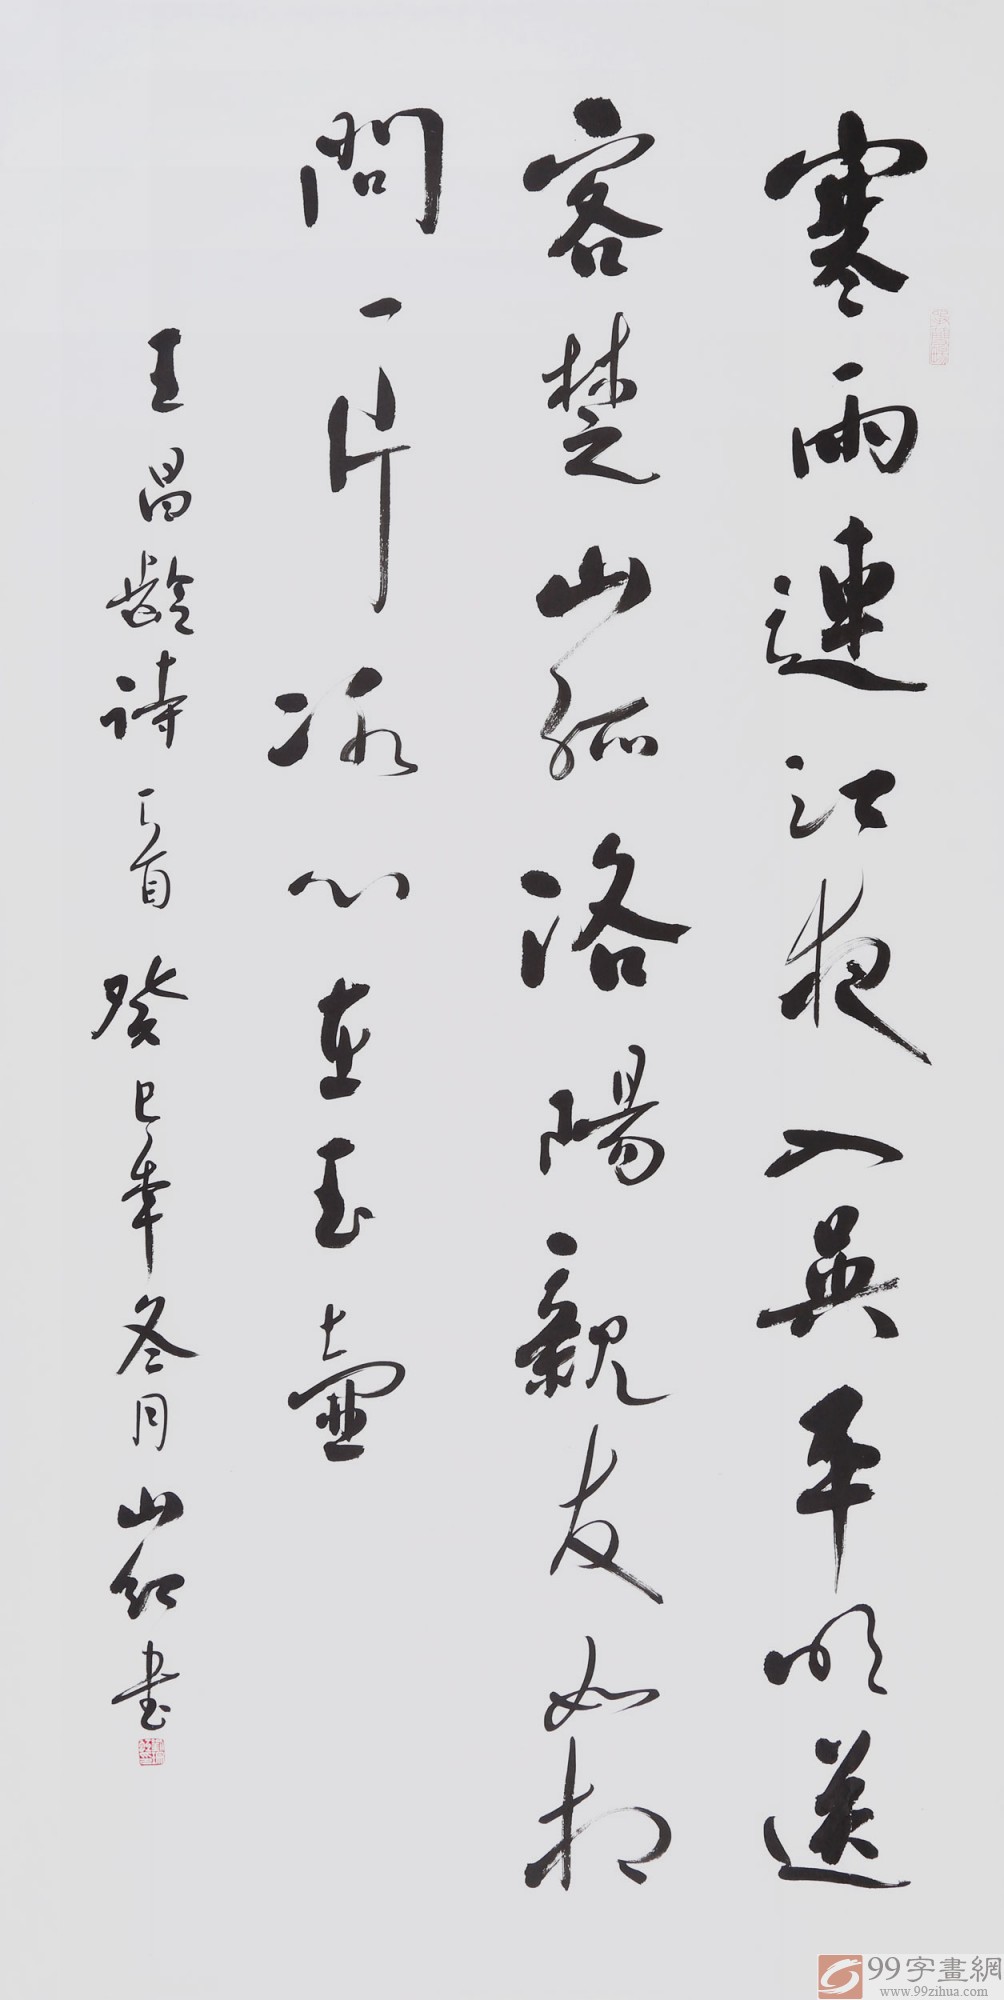 寒雨連江夜入吳平明送
客楚山孤洛陽親友如相
問一片冰心在玉壺
王昌齡詩一首癸巳年冬月山紅書
99字畫網
www.99zihua.com